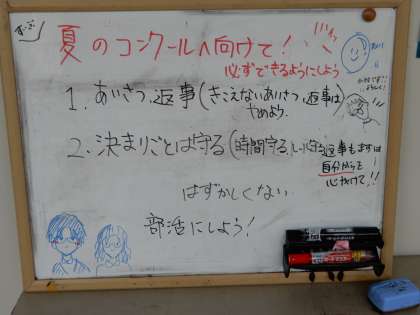 夏のコンクールへ向けて!
必ずできるようにしよう
1. あいさつ、返事(きこえないあいさつ、返事は
やめよう
2. 決まりごとは守る(時間守る、
返事もまずは
自分から
心がけて!!
はずかしくない
部活にしよう!